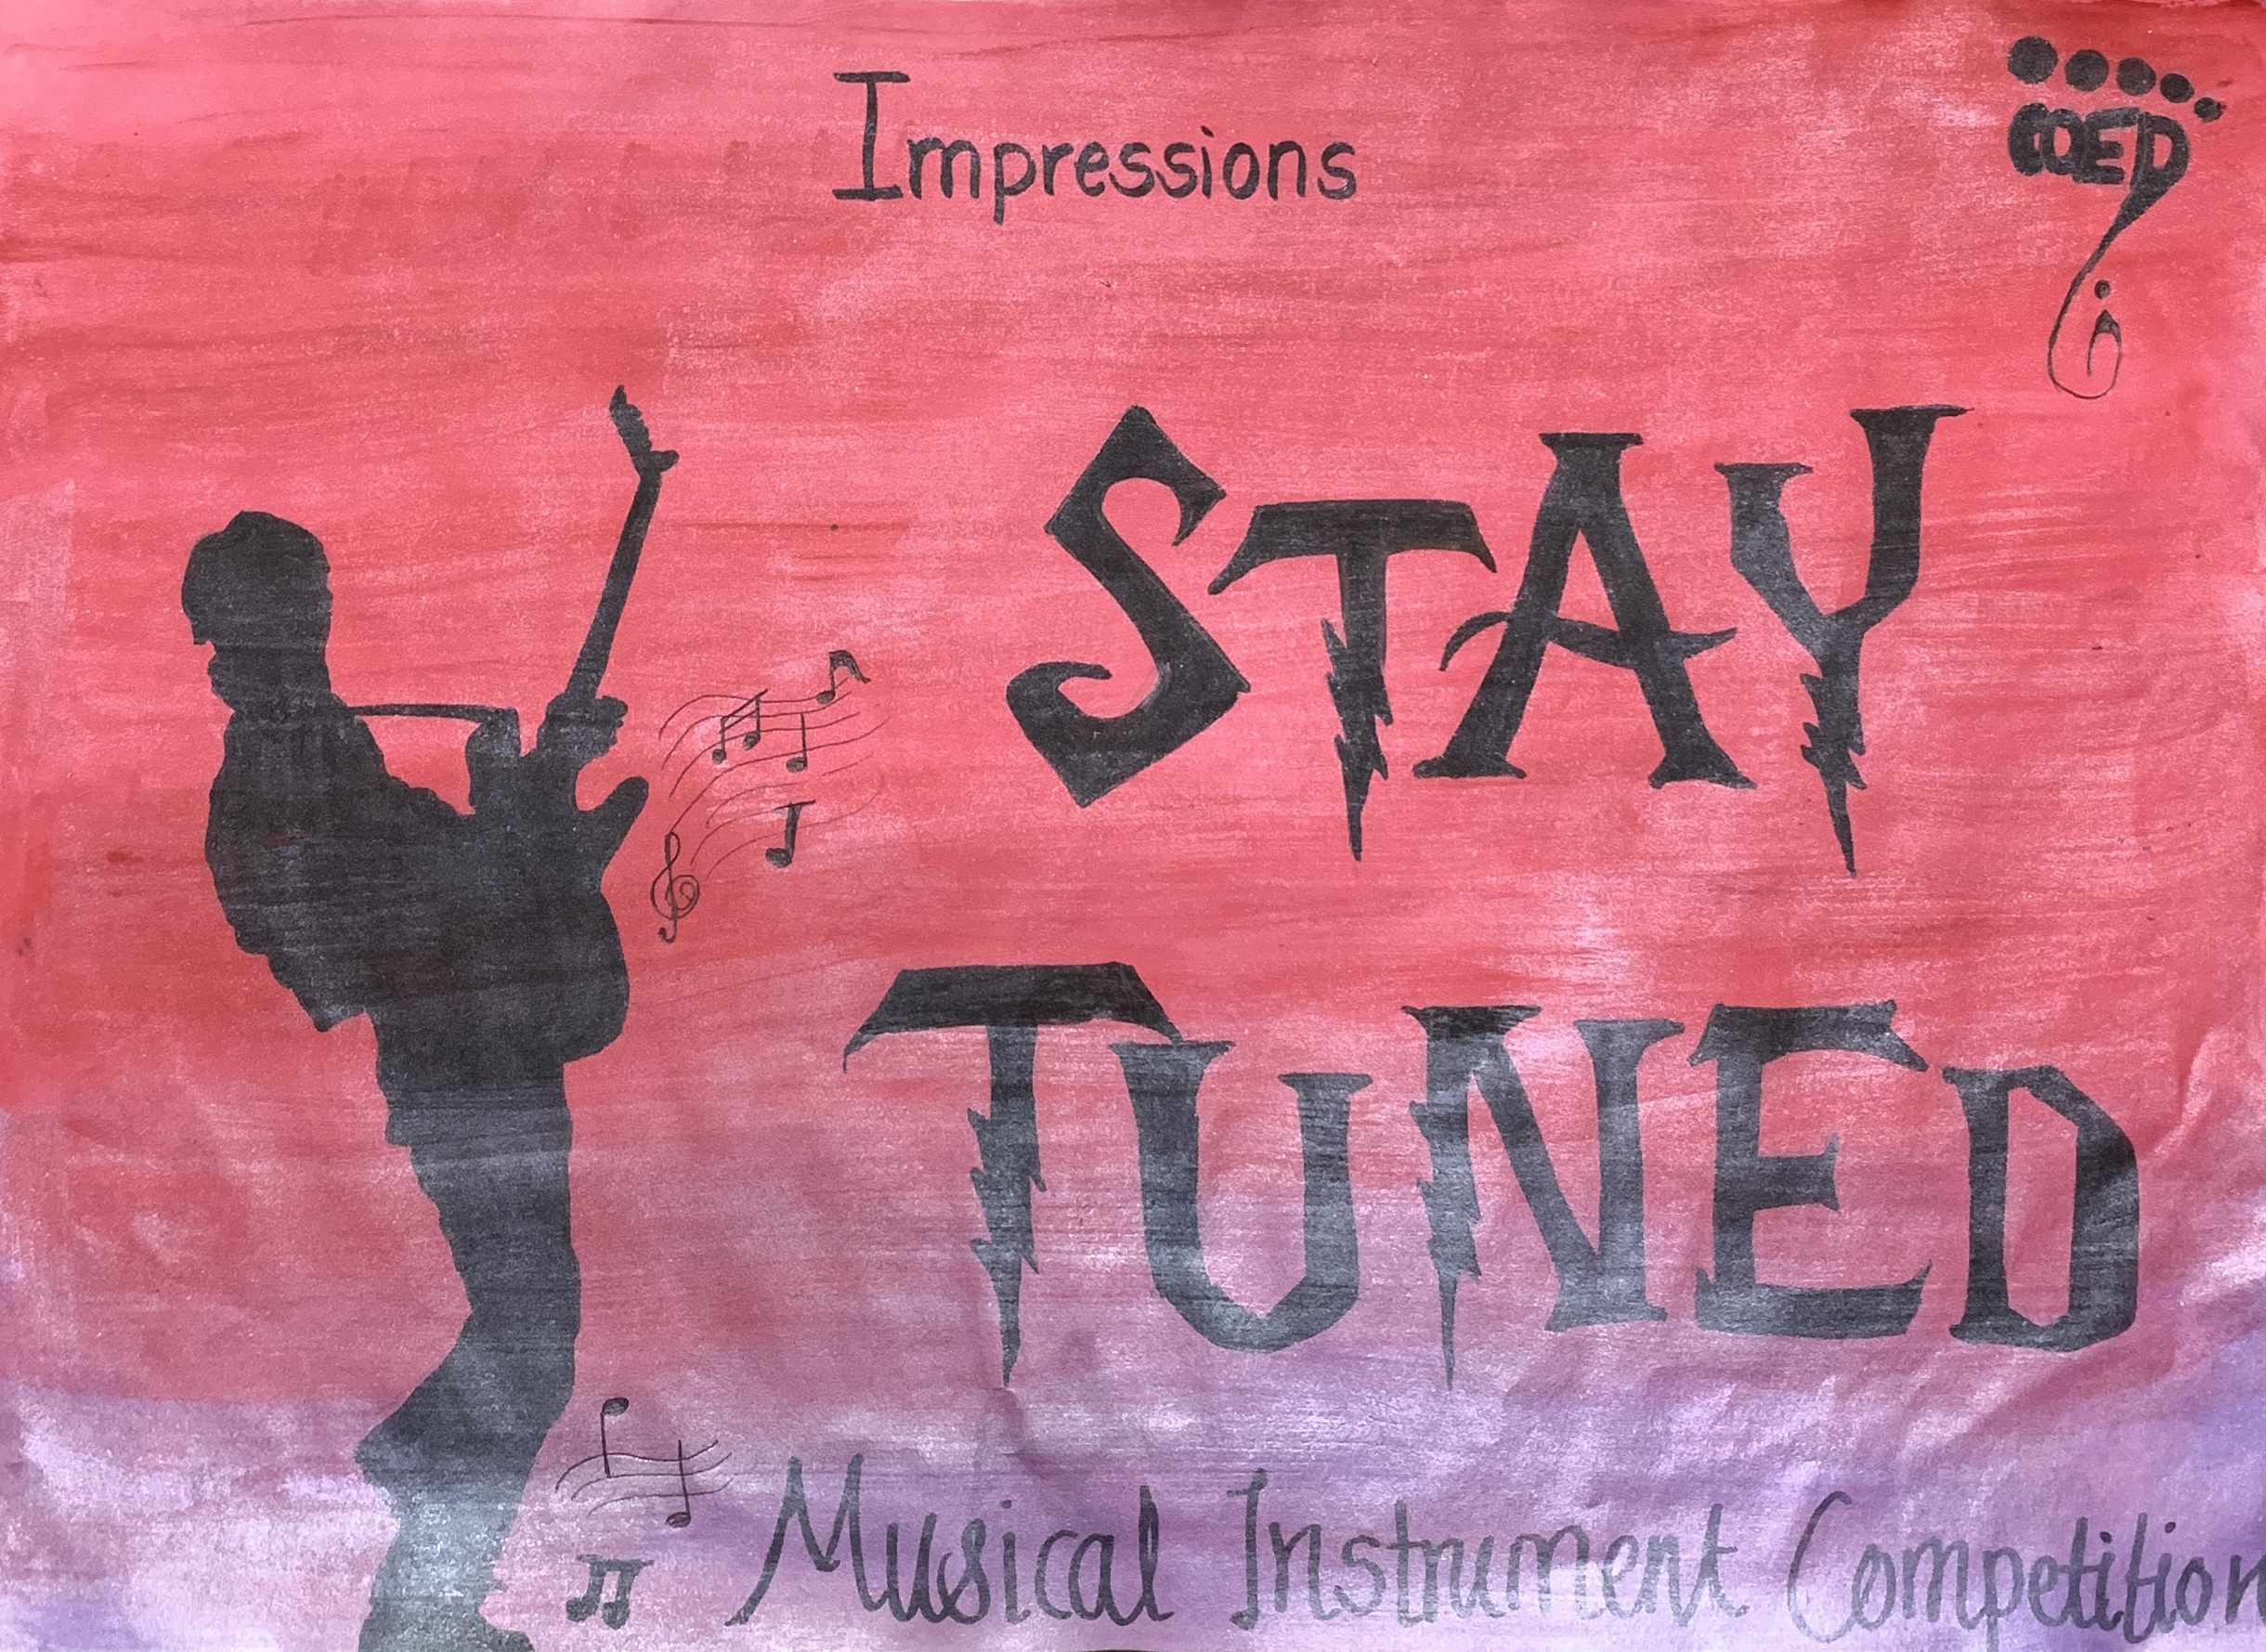 Impressions
COED
STAY
TUNED
Musical Instrument Competition